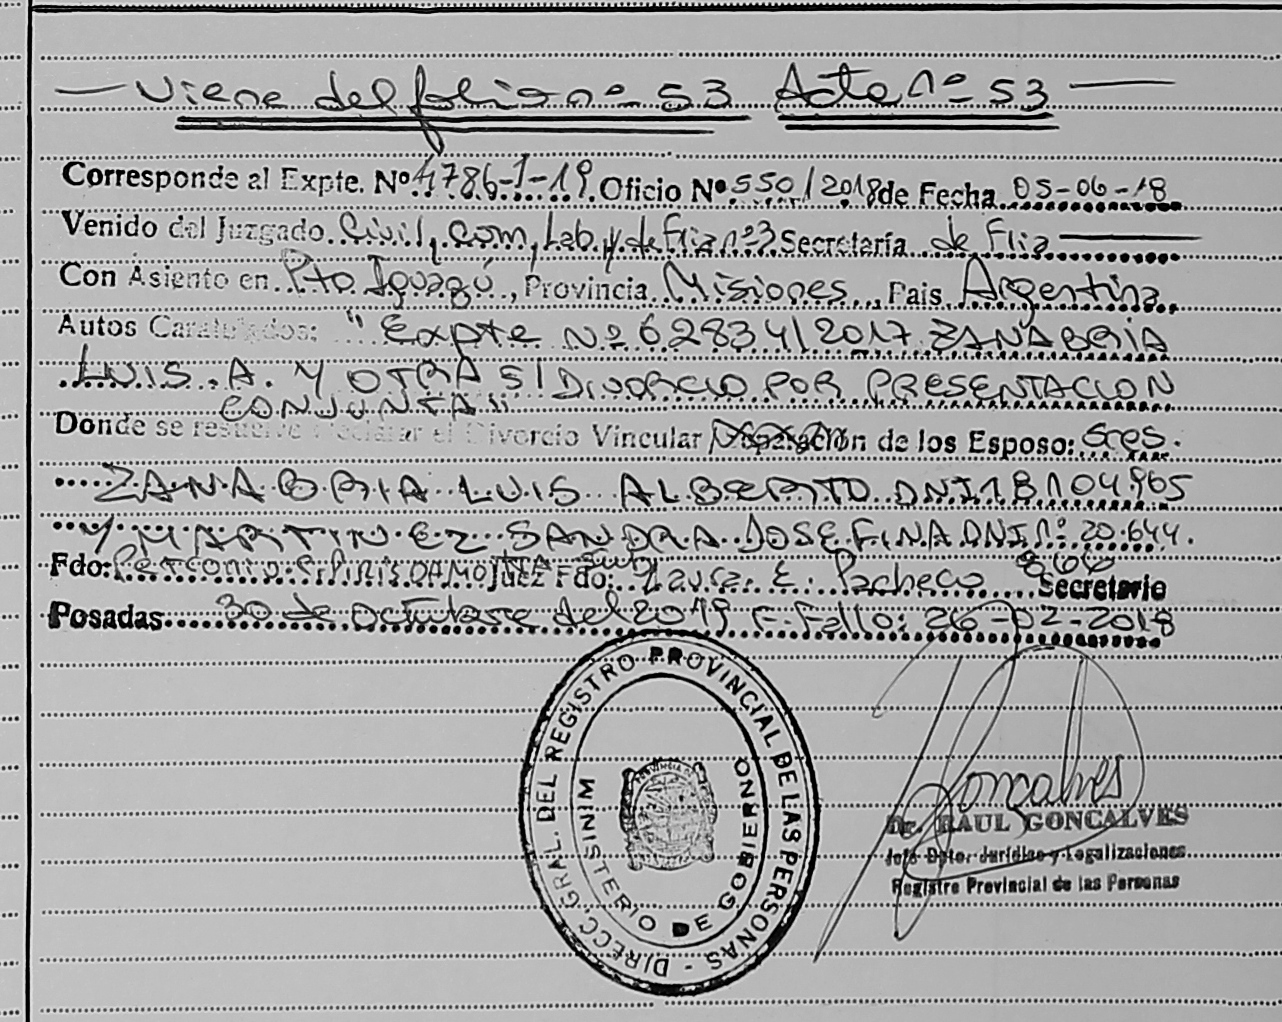 — Viene del folio nº 53 Acta nº 53 —
Corresponde al Expte. Nº 4786-J-19. Oficio Nº 550/2018 de Fecha 05-06-18
Venido del Juzgado Civil, Com, Lab. y de Flia nº3 Secretaría de Flia
Con Asiento en Pto Iguazú, Provincia Misiones, Pais Argentina
Autos Caratulados: "Expte Nº 62834/2017 ZANABRIA
LUIS A. Y OTRA S/DIVORCIO POR PRESENTACION
CONJUNTA"
Donde se resuelve Declarar el Divorcio Vincular Separación de los Esposo: Sres.
ZANABRIA LUIS ALBERTO DNI 18104965
Y MARTINEZ SANDRA JOSEFINA DNI nº 20.644.
866
Fdo: Juez Fdo: Laura E. Pacheco Secretario
Posadas 30 de Octubre del 2019 F. Fallo: 26-02-2018
DIRECC. GRAL. DEL REGISTRO PROVINCIAL DE LAS PERSONAS -
MINISTERIO DE GOBIERNO
Gonçalves
Dr. RAUL GONCALVES
Jefe Dpto. Jurídico y Legalizaciones
Registro Provincial de las Personas